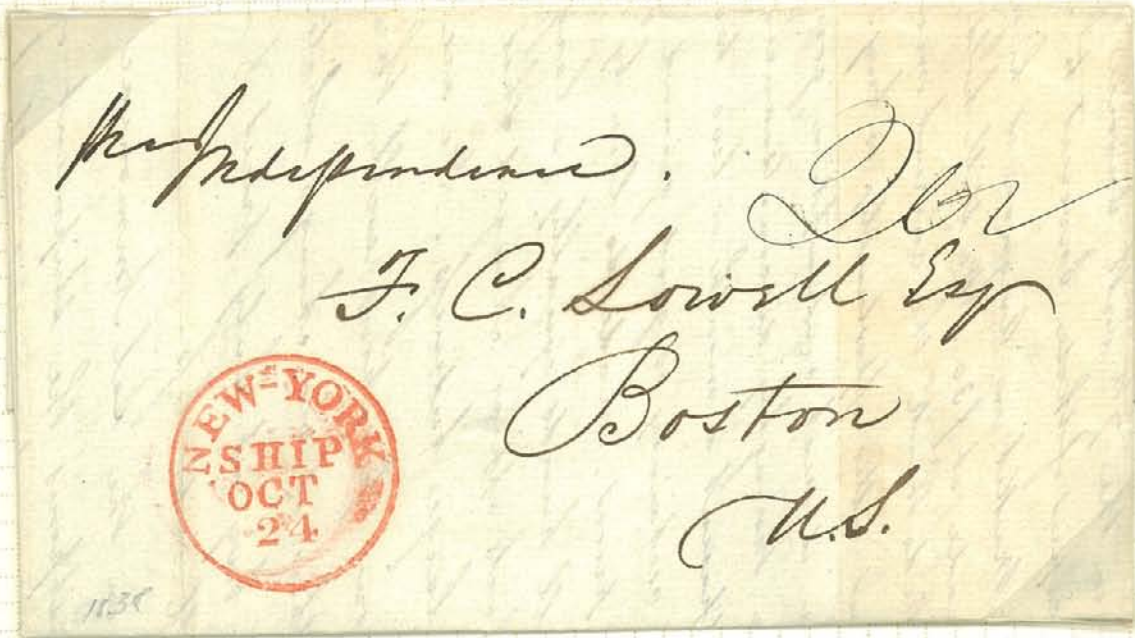 per Independence.
F. C. Lowell Esq
Boston
U.S.
NEW=YORK
SHIP
OCT
24